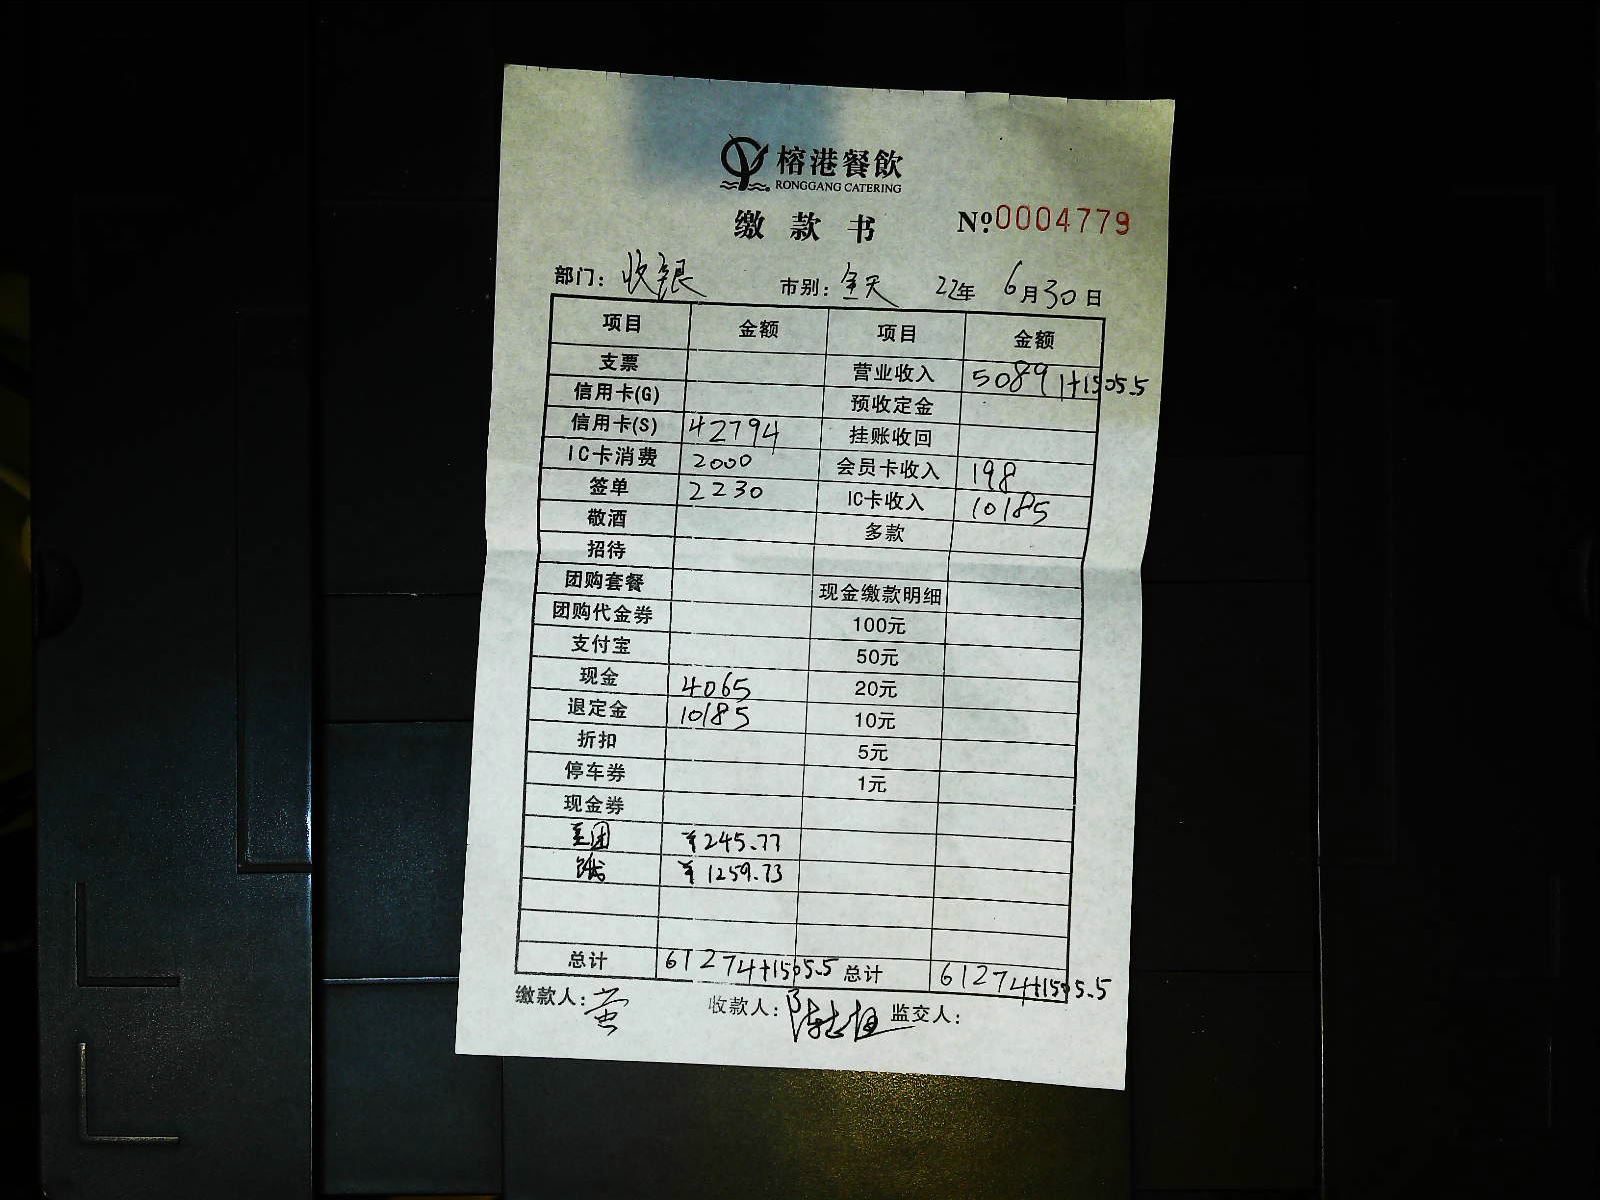 榕港餐飲
RONGGANG CATERING
缴款书 №0004779
部门: 收银 市别: 全天 22年 6月30日
项目 金额 项目 金额
支票 营业收入 50891+1505.5
信用卡(G) 预收定金
信用卡(S) 42794 挂账收回
IC卡消费 2000 会员卡收入 198
签单 2230 IC卡收入 10185
敬酒 多款
招待
团购套餐 现金缴款明细
团购代金券 100元
支付宝 50元
现金 4065 20元
退定金 10185 10元
折扣 5元
停车券 1元
现金券
美团 ¥245.77
¥1259.73
总计 61274+1505.5 总计 61274+1505.5
缴款人: 收款人: 监交人: